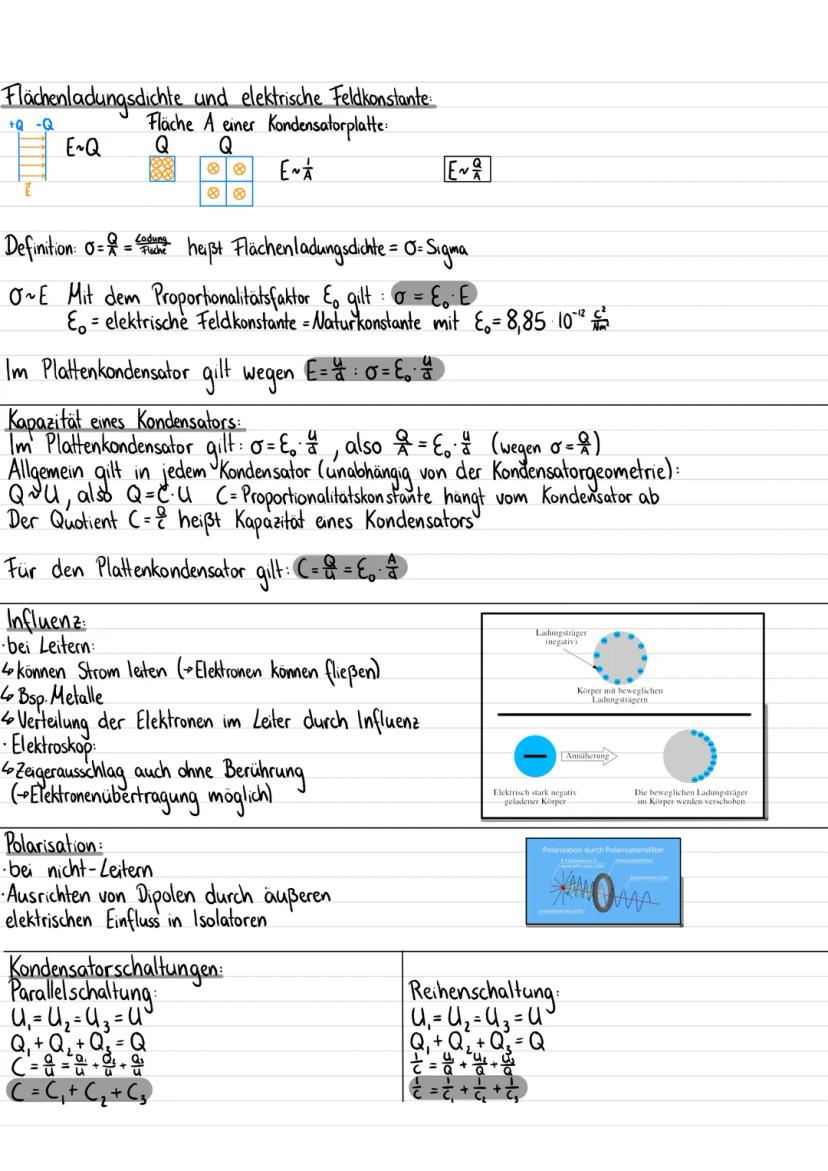 Flächenladungsdichte und elektrische Feldkonstante:
+Q -Q
E~Q
Fläche A einer Kondensatorplatte:
Q Q
E~1/A
E~Q/A
E
Definition: σ=Q/A = Ladung/Fläche heißt Flächenladungsdichte = σ=Sigma
σ~E Mit dem Proportionalitätsfaktor ε₀ gilt : σ = ε₀·E
ε₀ = elektrische Feldkonstante = Naturkonstante mit ε₀= 8,85·10⁻¹² C²/Nm²
Im Plattenkondensator gilt wegen E=U/d : σ=ε₀·U/d
Kapazität eines Kondensators:
Im Plattenkondensator gilt: σ=ε₀·U/d , also Q/A = ε₀·U/d (wegen σ=Q/A)
Allgemein gilt in jedem Kondensator (unabhängig von der Kondensatorgeometrie):
Q~U, also Q=C·U C=Proportionalitätskonstante hängt vom Kondensator ab
Der Quotient C=Q/C heißt Kapazität eines Kondensators
Für den Plattenkondensator gilt: C=Q/U = ε₀·A/d
Influenz:
·bei Leitern:
↳können Strom leiten (→Elektronen können fließen)
↳Bsp. Metalle
↳Verteilung der Elektronen im Leiter durch Influenz
·Elektroskop:
↳Zeigerausschlag auch ohne Berührung
(→Elektronenübertragung möglich)
Ladungsträger
(negativ)
Körper mit beweglichen
Ladungsträgern
Annäherung
Elektrisch stark negativ
geladener Körper
Die beweglichen Ladungsträger
im Körper werden verschoben
Polarisation:
·bei nicht-Leitern
·Ausrichten von Dipolen durch äußeren
elektrischen Einfluss in Isolatoren
Polarisation durch Polarisationsfilter
Polarisationsfilter
polarisiertes Licht
unpolarisiertes Licht
Kondensatorschaltungen:
Parallelschaltung:
U₁=U₂=U₃=U
Q₁+Q₂+Q₃=Q
C=Q/U=Q₁/U+Q₂/U+Q₃/U
C=C₁+C₂+C₃
Reihenschaltung:
U₁=U₂=U₃=U
Q₁+Q₂+Q₃=Q
1/C=U₁/Q+U₂/Q+U₃/Q
1/C=1/C₁+1/C₂+1/C₃